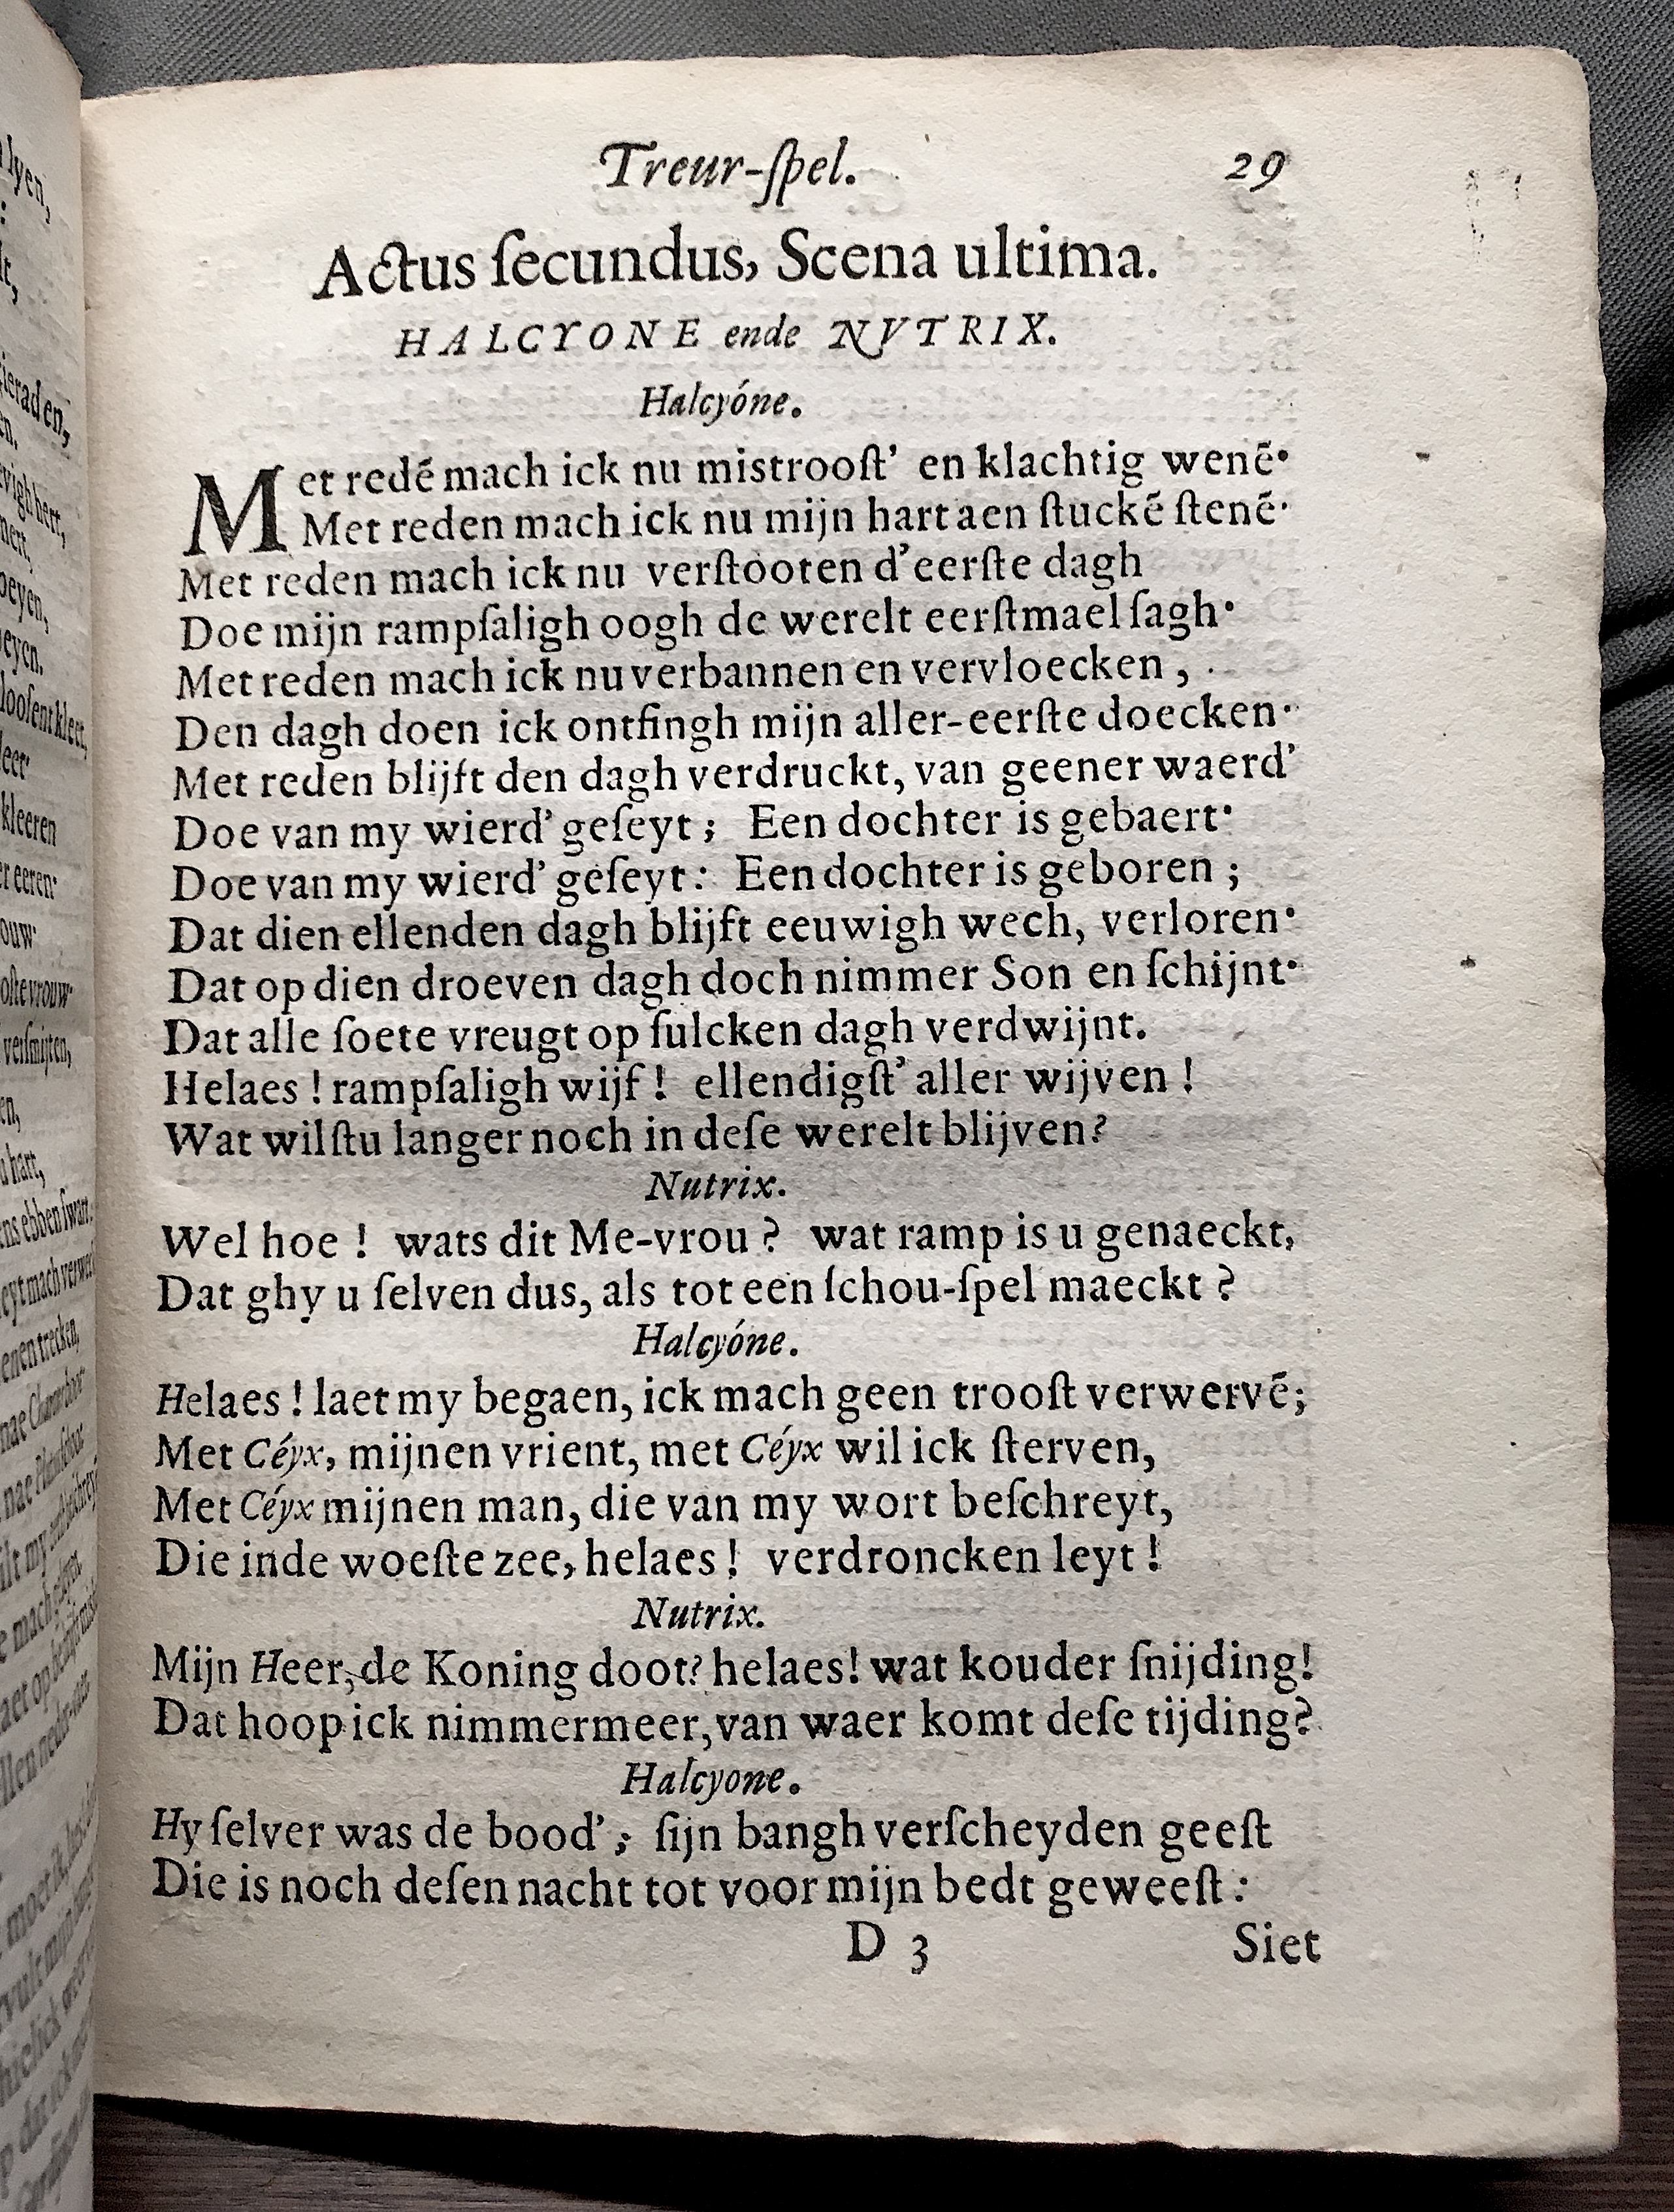 Treur-ſpel. 29
Actus ſecundus, Scena ultima.
HALCYONE ende NVTRIX.
Halcyóne.
Met redē mach ick nu mistrooſt' en klachtig wenē·
Met reden mach ick nu mijn hart aen ſtuckē ſtenē·
Met reden mach ick nu verſtooten d'eerſte dagh
Doe mijn rampſaligh oogh de werelt eerſtmael ſagh·
Met reden mach ick nu verbannen en vervloecken,
Den dagh doen ick ontfingh mijn aller-eerſte doecken·
Met reden blijft den dagh verdruckt, van geener waerd'
Doe van my wierd' geſeyt; Een dochter is gebaert·
Doe van my wierd' geſeyt: Een dochter is geboren;
Dat dien ellenden dagh blijft eeuwigh wech, verloren·
Dat op dien droeven dagh doch nimmer Son en ſchijnt·
Dat alle ſoete vreugt op ſulcken dagh verdwijnt.
Helaes! rampſaligh wijf! ellendigſt' aller wijven!
Wat wilſtu langer noch in deſe werelt blijven?
Nutrix.
Wel hoe! wats dit Me-vrou? wat ramp is u genaeckt,
Dat ghy u ſelven dus, als tot een ſchou-ſpel maeckt?
Halcyóne.
Helaes! laet my begaen, ick mach geen trooſt verwervē;
Met Céyx, mijnen vrient, met Céyx wil ick ſterven,
Met Céyx mijnen man, die van my wort beſchreyt,
Die inde woeſte zee, helaes! verdroncken leyt!
Nutrix.
Mijn Heer, de Koning doot? helaes! wat kouder ſnijding!
Dat hoop ick nimmermeer, van waer komt deſe tijding?
Halcyone.
Hy ſelver was de bood'; ſijn bangh verſcheyden geeſt
Die is noch deſen nacht tot voor mijn bedt geweeſt:
D 3 Siet